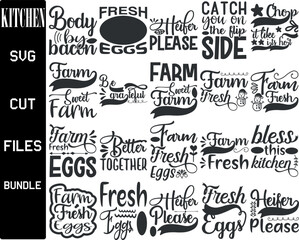 KITCHEN
SVG
CUT
FILES
BUNDLE
Body
by
bacon
FRESH
EGGS
Heifer
PLEASE
CATCH
you on
the flip
SIDE
Chop
it like
its hot
Farm
Sweet
Farm
Be
grateful
FARM
Sweet
Farm
Farm
Fresh
Farm
Fresh
Farm
Fresh
EGGS
Better
TOGETHER
Farm
Fresh
Eggs
Farm
Fresh
bless
this
kitchen
Farm
Fresh
Eggs
Fresh
Eggs
Heifer
Please
Fresh
Eggs
Heifer
Please